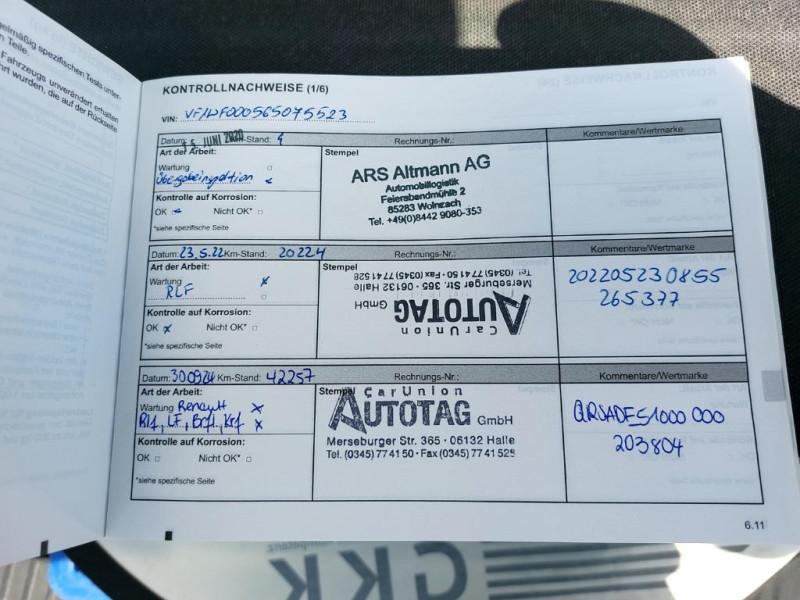 egelmäßig spezifischen Tests unter-
n Teile
Fahrzeugs unverändert erhalten
hrt wurden, die auf der Rückseite
KONTROLLNACHWEISE (1/6)
VIN:
Datum: JUNI 2020 -Stand: Rechnungs-Nr.: Kommentare/Wertmarke
Art der Arbeit:
Wartung
Kontrolle auf Korrosion:
OK Nicht OK*
*siehe spezifische Seite
Stempel
ARS Altmann AG
Automobillogistik
Feierabendmühle 2
85283 Wolnzach
Tel. +49(0)8442 9080-353
Datum: 23.5.22 Km-Stand: 20224 Rechnungs-Nr.: Kommentare/Wertmarke
Art der Arbeit:
Wartung x
RLF
Kontrolle auf Korrosion:
OK x Nicht OK*
*siehe spezifische Seite
Stempel
CarUnion
AUTOTAG GmbH
Merseburger Str. 365 · 06132 Halle
Tel. (0345) 77 41 50 · Fax (0345) 77 41 528
202205230855
265377
Datum: 300924 Km-Stand: 42257 Rechnungs-Nr.: Kommentare/Wertmarke
Art der Arbeit:
Wartung Renault x
Rlf, LF, Brfl., Krf x
Kontrolle auf Korrosion:
OK Nicht OK*
*siehe spezifische Seite
Stempel
CarUnion
AUTOTAG GmbH
Merseburger Str. 365 · 06132 Halle
Tel. (0345) 77 41 50 · Fax (0345) 77 41 528
QRSADES1000000
203804
6.11
GKK